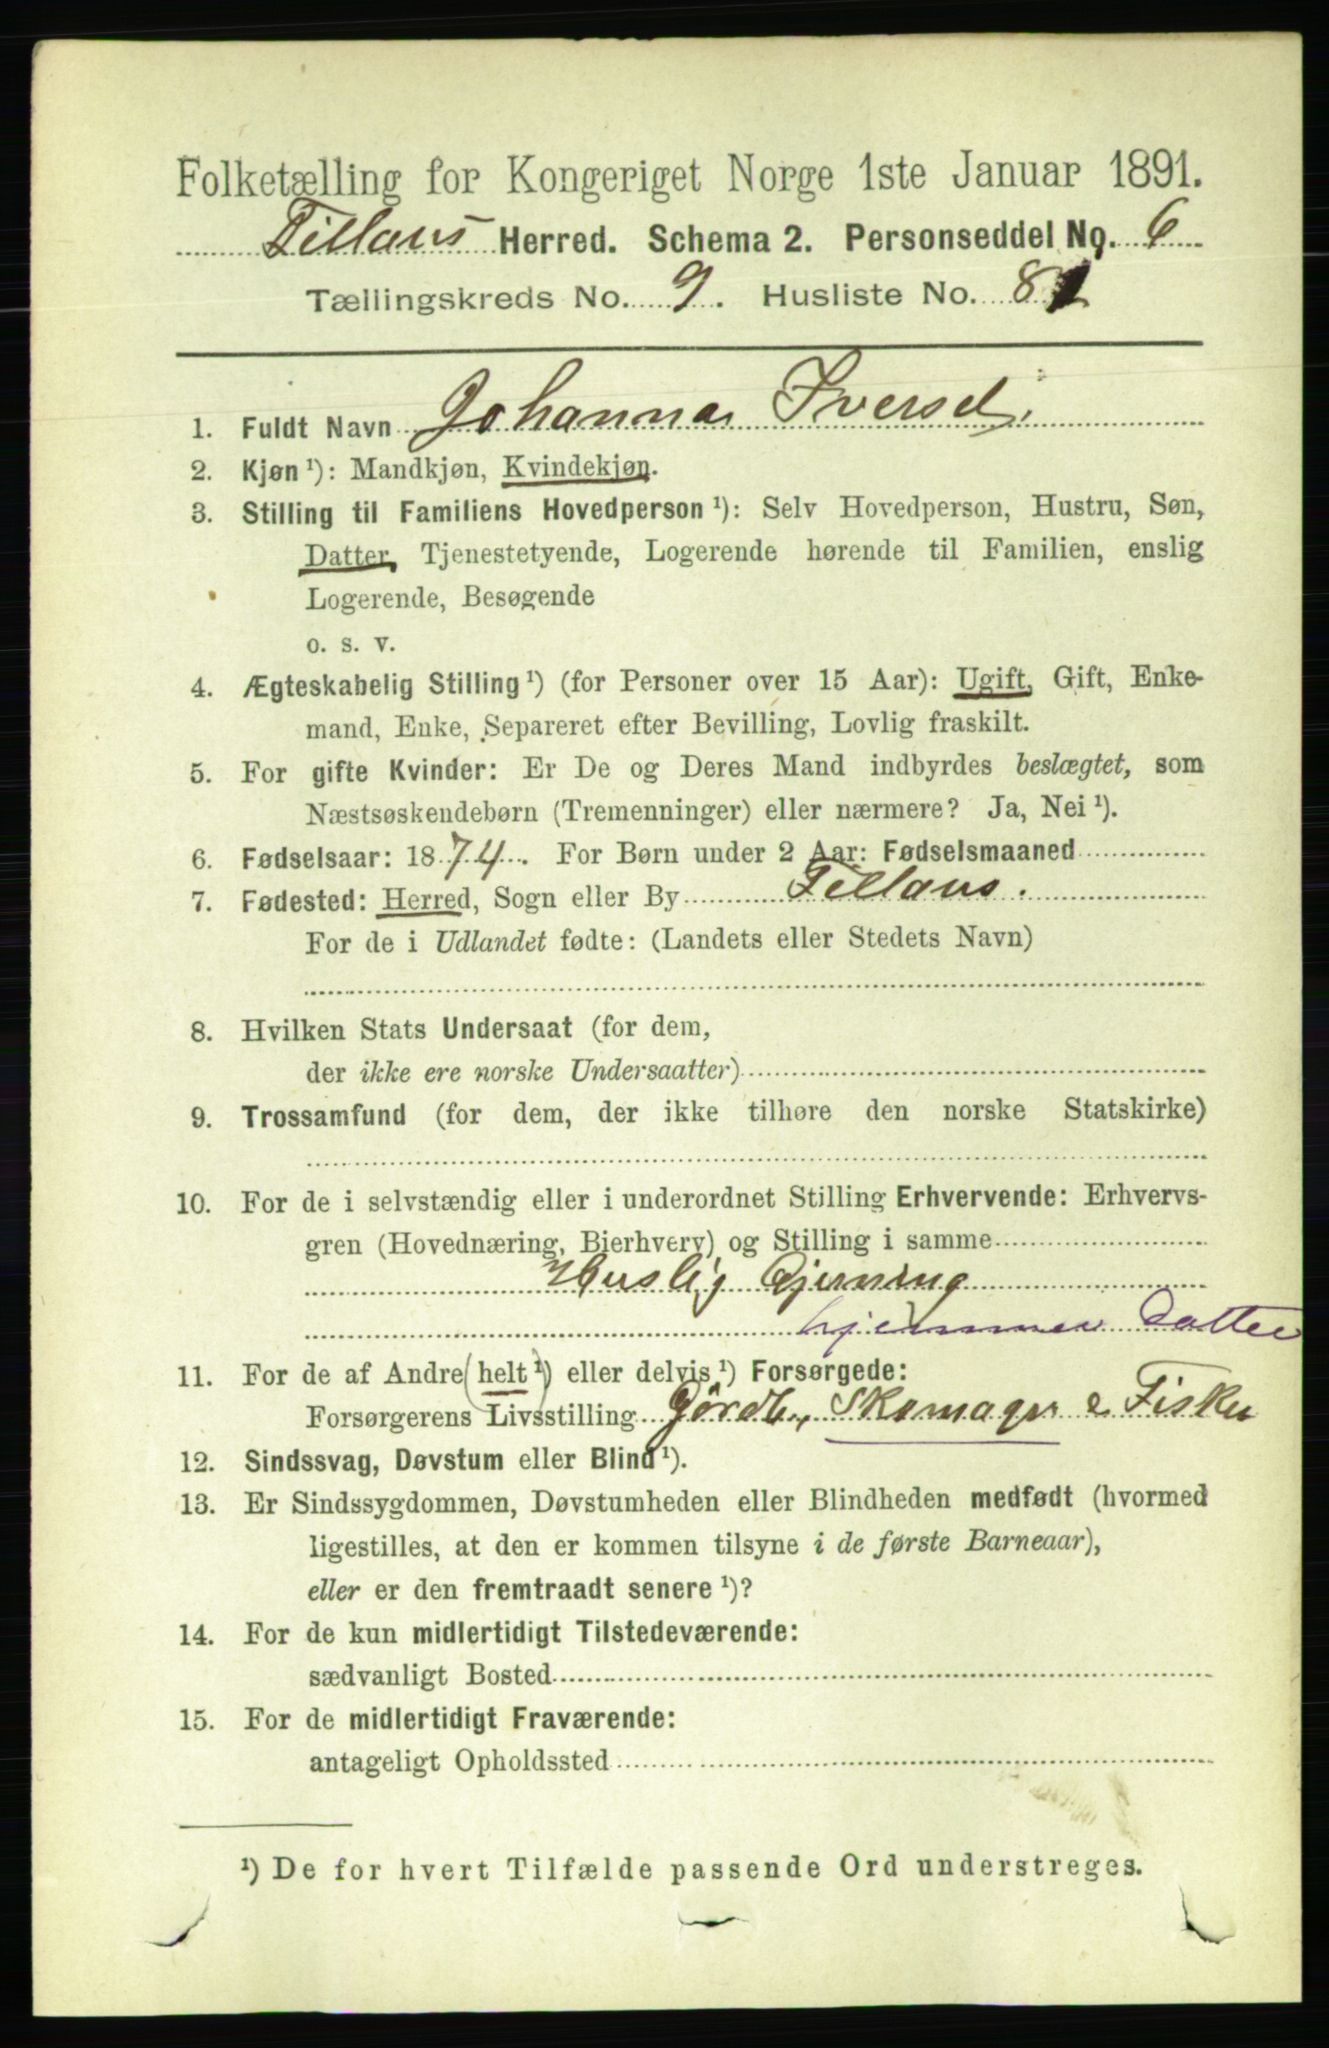 Folketælling for Kongeriget Norge 1ste Januar 1891.
Fillans Herred. Schema 2. Personseddel No. 6
Tællingskreds No. 9. Husliste No. 8
1. Fuldt Navn Johanna Iversd.
2. Kjøn ¹): Mandkjøn, Kvindekjøn.
3. Stilling til Familiens Hovedperson ¹): Selv Hovedperson, Hustru, Søn,
Datter, Tjenestetyende, Logerende hørende til Familien, enslig
Logerende, Besøgende
o. s. v.
4. Ægteskabelig Stilling ¹) (for Personer over 15 Aar): Ugift, Gift, Enke-
mand, Enke, Separeret efter Bevilling, Lovlig fraskilt.
5. For gifte Kvinder: Er De og Deres Mand indbyrdes beslægtet, som
Næstsøskendebørn (Tremenninger) eller nærmere? Ja, Nei ¹).
6. Fødselsaar: 1874. For Børn under 2 Aar: Fødselsmaaned
7. Fødested: Herred, Sogn eller By Fillans.
For de i Udlandet fødte: (Landets eller Stedets Navn)
8. Hvilken Stats Undersaat (for dem,
der ikke ere norske Undersaatter)
9. Trossamfund (for dem, der ikke tilhøre den norske Statskirke)
10. For de i selvstændig eller i underordnet Stilling Erhvervende: Erhvervs-
gren (Hovednæring, Bierhverv) og Stilling i samme
Huslig Gjerning
hjemmev Datter
11. For de af Andre (helt ¹) eller delvis ¹) Forsørgede:
Forsørgerens Livsstilling Gördb., Skomager & Fisker
12. Sindssvag, Døvstum eller Blind ¹).
13. Er Sindssygdommen, Døvstumheden eller Blindheden medfødt (hvormed
ligestilles, at den er kommen tilsyne i de første Barneaar),
eller er den fremtraadt senere ¹)?
14. For de kun midlertidigt Tilstedeværende:
sædvanligt Bosted
15. For de midlertidigt Fraværende:
antageligt Opholdssted
¹) De for hvert Tilfælde passende Ord understreges.